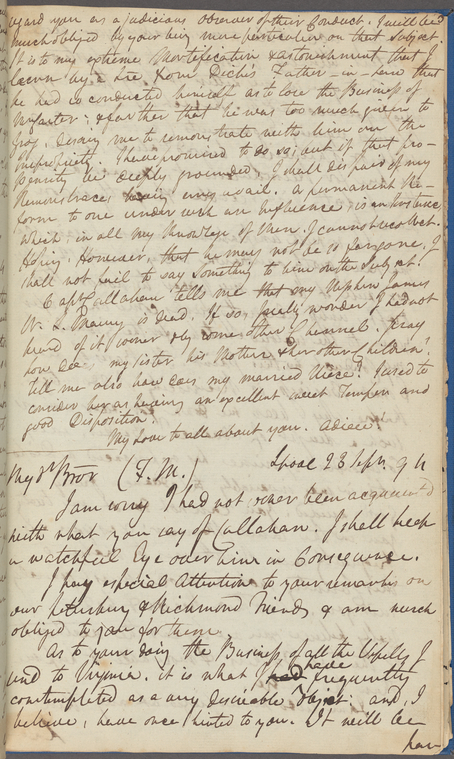 regard you as a judicious observer of their Conduct. I will be
much obliged by your being more particular on that Subject.
It is to my extreme Mortification & astonishment that I
learn by a Lre from Dicks Father-in-law that
he had so conducted himself as to lose the Business of
; & farther that he was too much given to
Grog, desiring me to remonstrate with him on the
impropriety. I have promised to do so; but if that pro-
pensity be deeply grounded, I shall dispair of my
Remonstrances being any avail. A permanent Re-
form to one under such an Influence is an instance
which in all my Knowlege of Men I cannot recollect.
Hoping, However, that he may not be so far gone, I
shall not fail to say something to him on the Subject.
Capt Callahan tells me that my Nephew James
W. L. Maury is dead. If so, I really wonder I had not
heard of it sooner by some other Channel. Pray
how does my sister his Mother & her other Children?
tell me also how does my married Niece? I used to
consider her as having an excellent sweet Temper and
good Disposition.
My Love to all about you. Adieu!
My Dr Bror (F. M.) Lpool 23 Sepr. 94
I am sorry I had not sooner been acquainted
with what you say of Callahan. I shall keep
a watchful Eye over him in Consequence.
I pay especial Attention to your remarks on
our Petersburg & Richmond Friends & am much
obliged to you for them.
As to your doing the Business of all the Vessels I
send to Virginia. it is what I have frequently
contemplated as a very desireable Object: and, I
believe, have once hinted to you. It will be